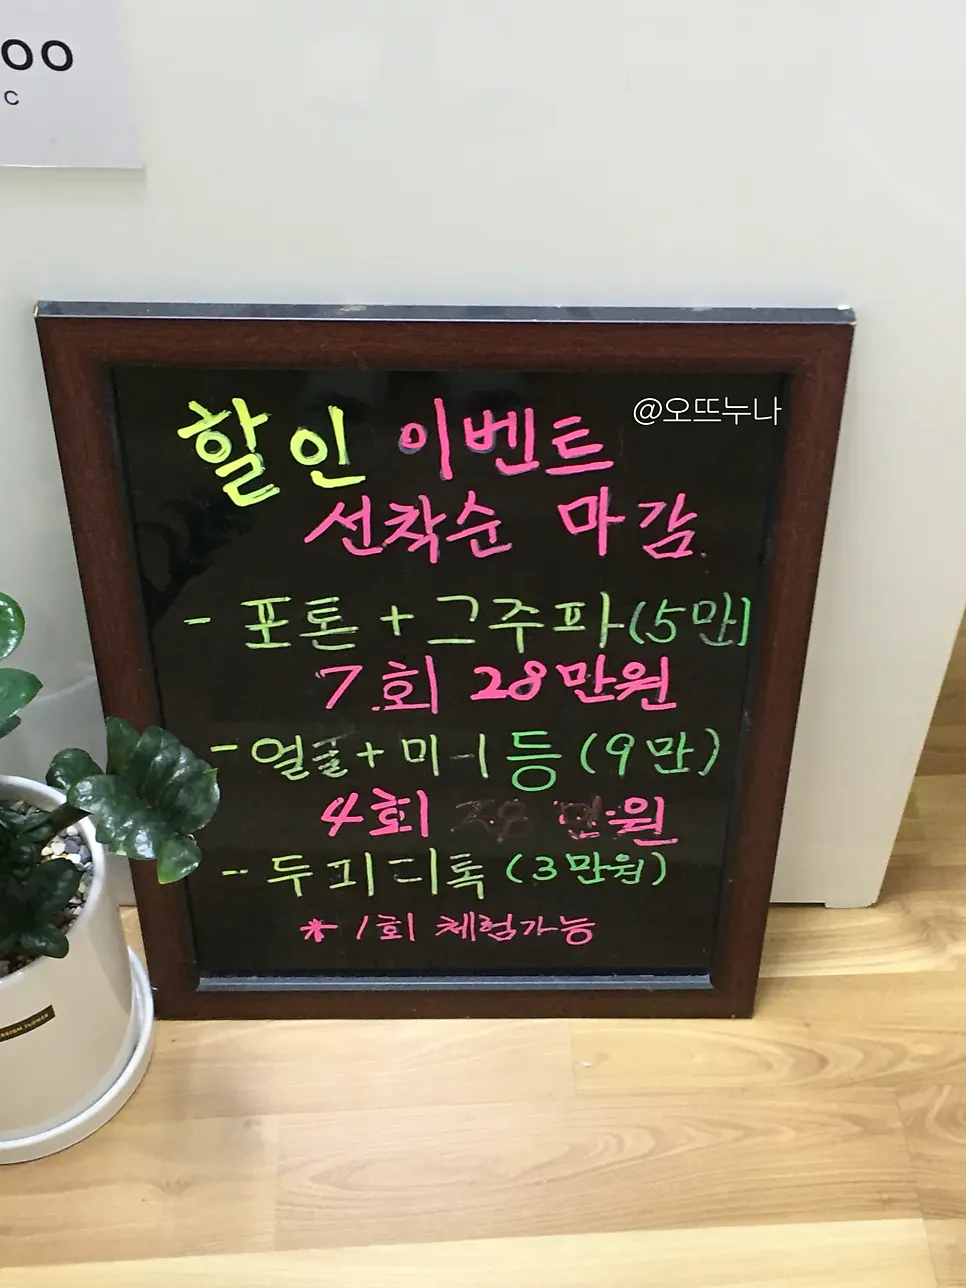 OO
C
@오뜨누나
할인 이벤트
선착순 마감
- 포톤 + 고주파 (5만)
7회 28만원
- 얼굴 + 등 (9만)
4회 만원
- 두피 디톡 (3만원)
* 1회 체험가능